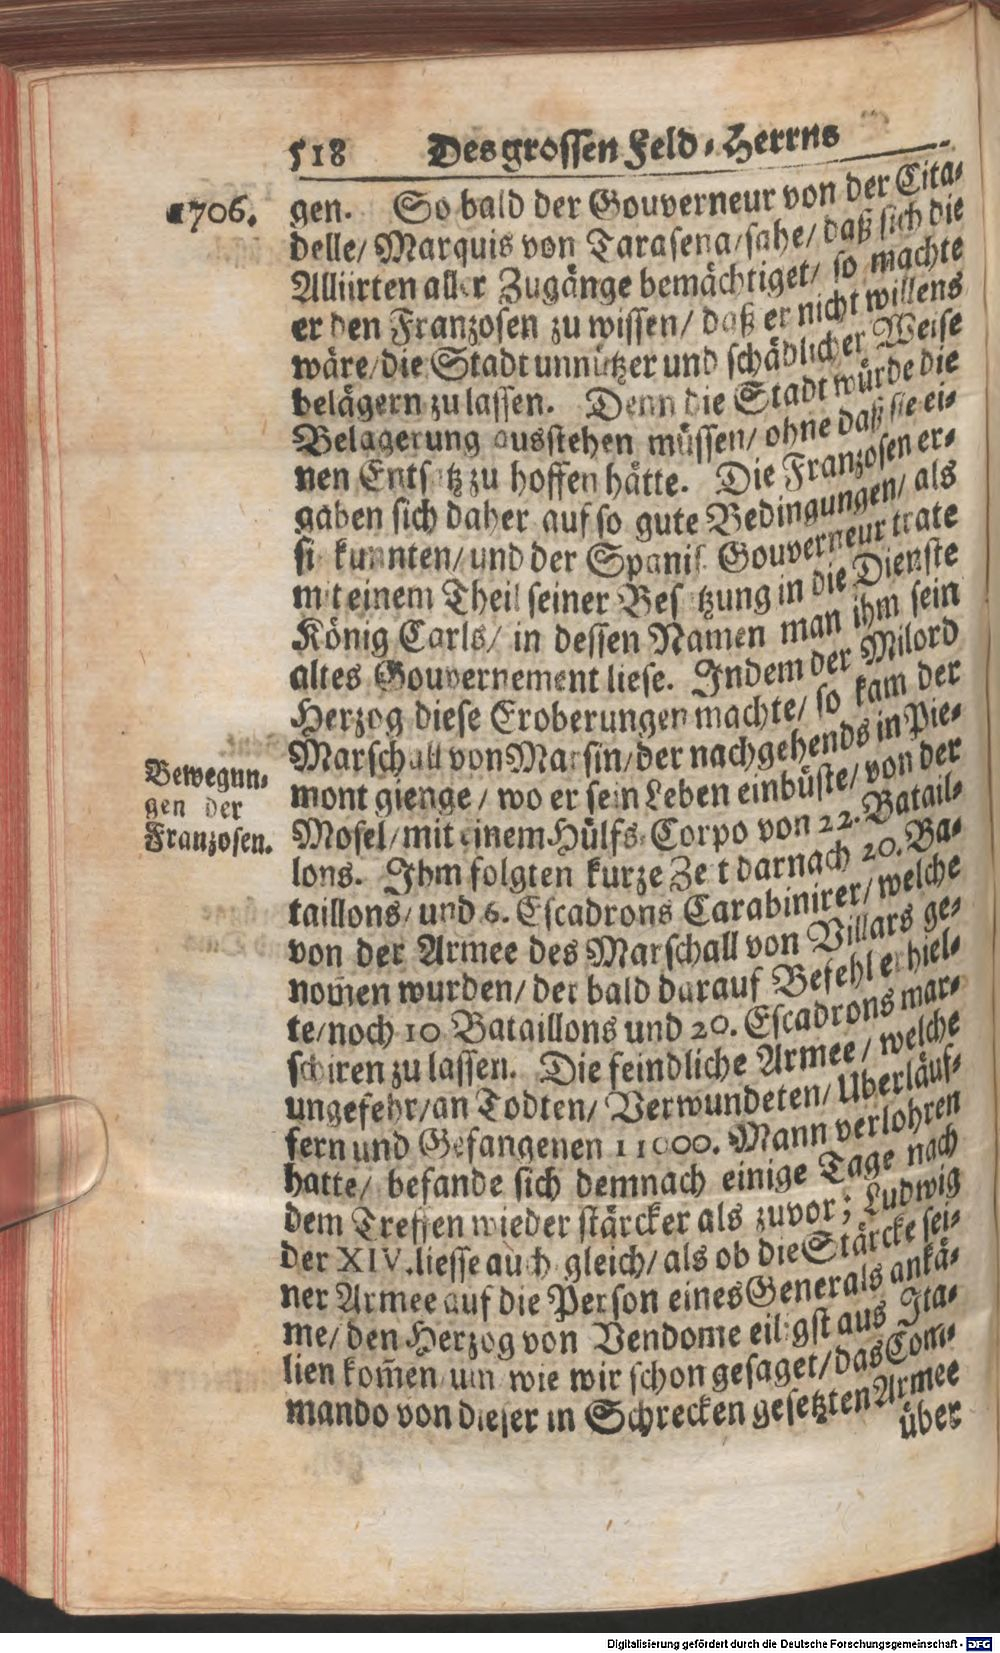 518 Des grossen Feld-Herrns
1706.
gen. So bald der Gouverneur von der Cita-
delle/ Marquis von Tarasena/ sahe/ daß sich die
Alliirten aller Zugänge bemächtiget/ so machte
er den Franzosen zu wissen/ daß er nicht willens
wäre/ die Stadt unnützer und schädlicher Weise
belägern zu lassen. Denn die Stadt würde die
Belagerung ausstehen müssen/ ohne daß sie ei-
nen Entsatz zu hoffen hätte. Die Franzosen er-
gaben sich daher auf so gute Bedingungen/ als
sie kunnten/ und der Spanis. Gouverneur trate
mit einem Theil seiner Besatzung in die Dienste
König Carls/ in dessen Namen man ihm sein
altes Gouvernement liese. Indem der Milord
Herzog diese Eroberungen machte/ so kam der
Marschall von Marsin/ der nachgehends in Pie-
Bewegun-
gen der
Franzosen.
mont gienge/ wo er sein Leben einbüste/ von der
Mosel/ mit einem Hülfs-Corpo von 22. Batail-
lons. Ihm folgten kurze Zeit darnach 20. Ba-
taillons/ und 6. Escadrons Carabinirer/ welche
von der Armee des Marschall von Villars ge-
nom̄en wurden/ der bald darauf Befehl erhiel-
te/ noch 10 Bataillons und 20. Escadrons mar-
schiren zu lassen. Die feindliche Armee/ welche
ungefehr/ an Todten/ Verwundeten/ Uberläuf-
fern und Gefangenen 11000. Mann verlohren
hatte/ befande sich demnach einige Tage nach
dem Treffen wieder stärcker als zuvor; Ludwig
der XIV. liesse auch gleich/ als ob die Stärcke sei-
ner Armee auf die Person eines Generals ankä-
me/ den Herzog von Vendome eiligst aus Ita-
lien kom̄en um wie wir schon gesaget/ das Com-
mando von dieser in Schrecken gesetzten Armee
über
Digitalisierung gefördert durch die Deutsche Forschungsgemeinschaft - DFG